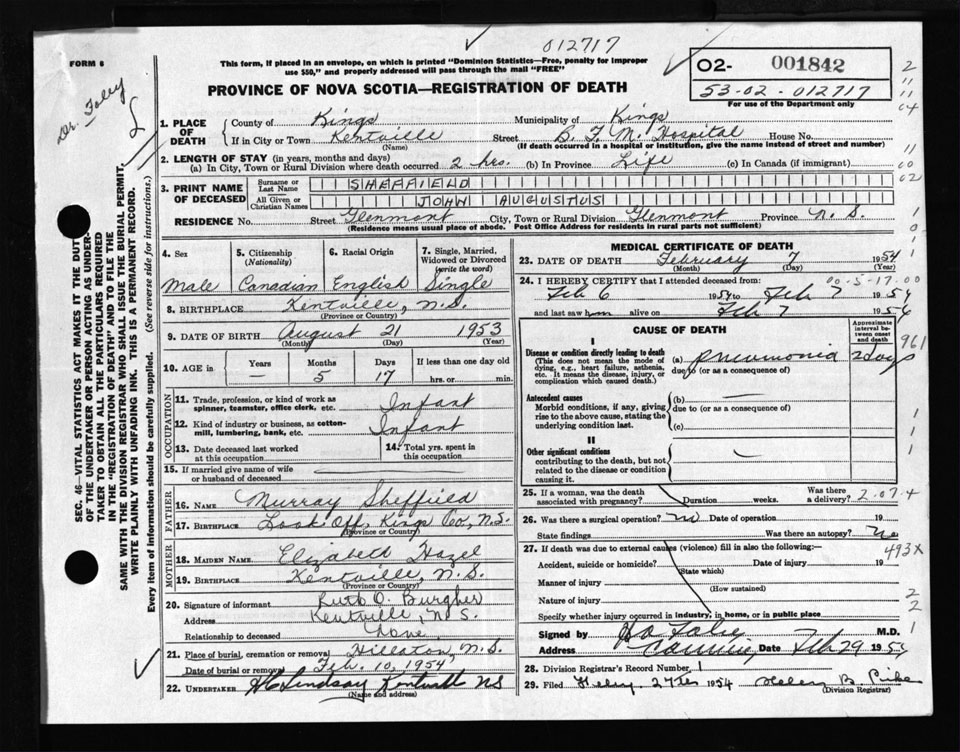 012717
FORM 6
This form, if placed in an envelope, on which is printed "Dominion Statistics—Free, penalty for improper
use $50," and properly addressed will pass through the mail "FREE"
PROVINCE OF NOVA SCOTIA—REGISTRATION OF DEATH
O2- 001842
53-02-012717
For use of the Department only
2
11
11
64
Dr. Foley
1. PLACE OF DEATH
County of Kings Municipality of Kings
If in City or Town Kentville Street B. F. M. Hospital House No.
(Name) (If death occurred in a hospital or institution, give the name instead of street and number)
2. LENGTH OF STAY (in years, months and days)
(a) In City, Town or Rural Division where death occurred 2 hrs. (b) In Province Life (c) In Canada (if immigrant)
11
60
62
3. PRINT NAME OF DECEASED
Surname or Last Name SHEFFIELD
All Given or Christian Names JOHN AUGUSTUS
RESIDENCE No. Street Glenmont City, Town or Rural Division Glenmont Province N. S.
(Residence means usual place of abode. Post Office Address for residents in rural parts not sufficient)
SEC. 46—VITAL STATISTICS ACT MAKES IT THE DUTY
OF THE UNDERTAKER OR PERSON ACTING AS UNDER-
TAKER TO OBTAIN ALL THE PARTICULARS REQUIRED
IN THE "REGISTRATION OF DEATH" AND TO FILE THE
SAME WITH THE DIVISION REGISTRAR WHO SHALL ISSUE THE BURIAL PERMIT.
WRITE PLAINLY WITH UNFADING INK. THIS IS A PERMANENT RECORD.
Every item of information should be carefully supplied. (See reverse side for instructions.)
4. Sex Male
5. Citizenship (Nationality) Canadian
6. Racial Origin English
7. Single, Married, Widowed or Divorced (write the word) Single
8. BIRTHPLACE Kentville, N.S.
(Province or Country)
9. DATE OF BIRTH August 21 1953
(Month) (Day) (Year)
10. AGE in Years — Months 5 Days 17 If less than one day old hrs. or min.
OCCUPATION
11. Trade, profession, or kind of work as
spinner, teamster, office clerk, etc. Infant
12. Kind of industry or business, as cotton-
mill, lumbering, bank, etc. Infant
13. Date deceased last worked
at this occupation
14. Total yrs. spent in
this occupation
15. If married give name of wife
or husband of deceased
FATHER
16. NAME Murray Sheffield
17. BIRTHPLACE Look Off, Kings Co., N.S.
(Province or Country)
MOTHER
18. MAIDEN NAME Elizabeth Hazel
19. BIRTHPLACE Kentville, N.S.
(Province or Country)
20. Signature of informant Ruth O. Burgher
Address Kentville, N S.
Relationship to deceased none
21. Place of burial, cremation or removal Hillaton, N.S.
Date of burial or removal Feb. 10, 1954
22. UNDERTAKER Lindsay Kentville NS
(Name and address)
MEDICAL CERTIFICATE OF DEATH
23. DATE OF DEATH February 7 1954
(Month) (Day) (Year)
24. I HEREBY CERTIFY that I attended deceased from: 00-5-17.00
Feb 6 1954 to Feb 7 1954
and last saw him alive on Feb 7 1954
CAUSE OF DEATH
Approximate interval between onset and death
I
Disease or condition directly leading to death
(This does not mean the mode of
dying, e.g., heart failure, asthenia,
etc. It means the disease, injury, or
complication which caused death.)
(a) pneumonia 2 days
due to (or as a consequence of)
961
Antecedent causes
Morbid conditions, if any, giving
rise to the above cause, stating the
underlying condition last.
(b) —
due to (or as a consequence of)
(c)
II
Other significant conditions
contributing to the death, but not
related to the disease or condition
causing it.
25. If a woman, was the death
associated with pregnancy? Duration weeks. Was there
a delivery? 2-07-4
26. Was there a surgical operation? no Date of operation 19
State findings Was there an autopsy? no
27. If death was due to external causes (violence) fill in also the following:— 493X
Accident, suicide or homicide? Date of injury 19
(State which)
Manner of injury
(How sustained)
Nature of injury
Specify whether injury occurred in industry, in home, or in public place
Signed by M.D.
Address Date Feb 29 1954
28. Division Registrar's Record Number 1
29. Filed 1954 Helen B.
(Division Registrar)